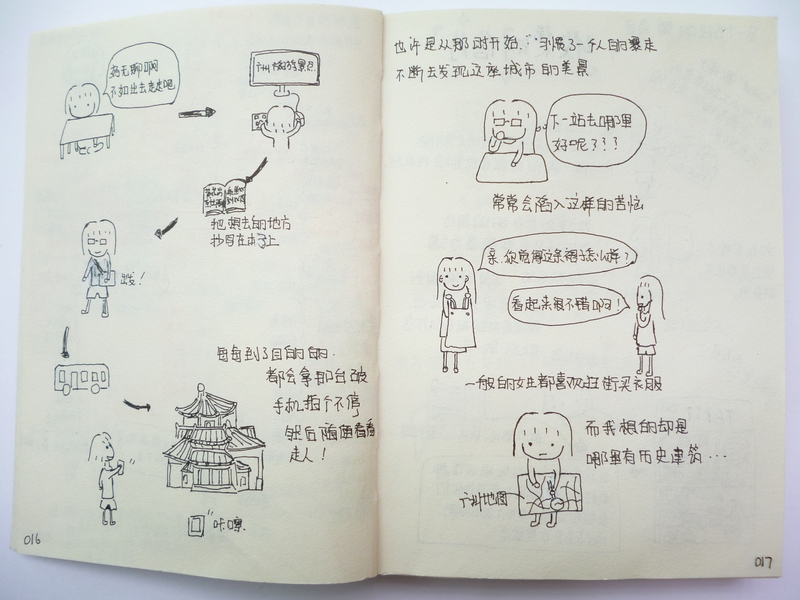 好无聊啊
不如出去走走吧
把想去的地方
抄写在本子上
出发!
每每到了目的的.
都会拿那台破
手机拍个不停
然后随便看看
走人!
咔嚓
016
也许是从那时开始,习惯了一个人的暴走
不断去发现这座城市的美景
下一站去哪里
好呢???
常常会陷入这样的苦恼
亲,你觉得这条裙子怎么样?
看起来很不错啊!
一般的女生都喜欢逛街买衣服
而我想的却是
哪里有历史建筑…
广州地图
017